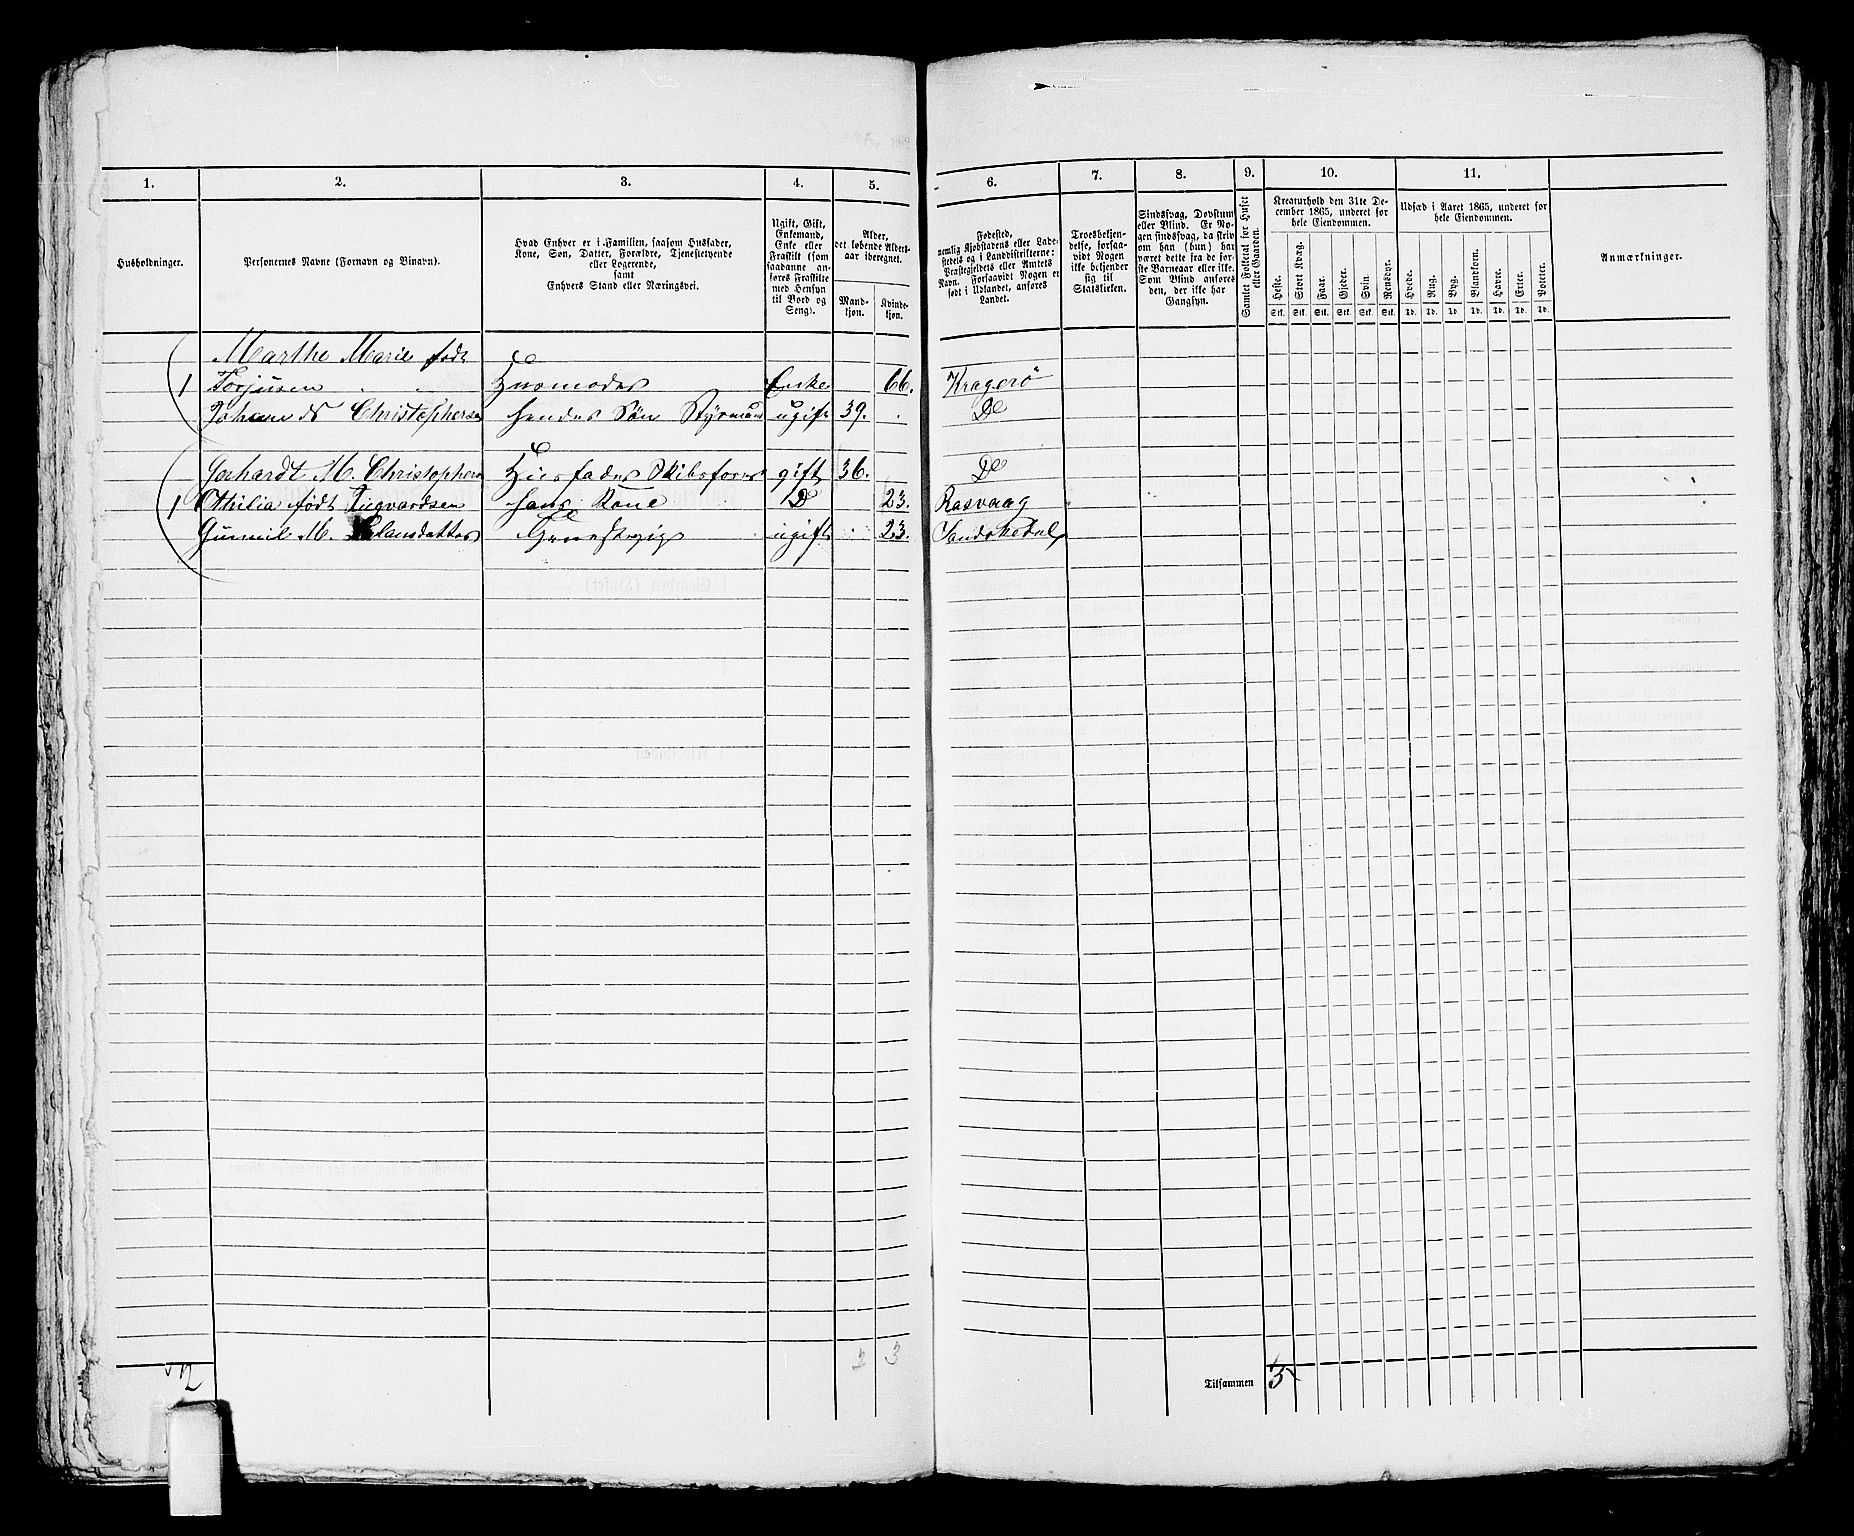 1. 2. 3. 4. 5. 6. 7. 8. 9. 10. 11.
Husholdninger.
Personernes Navne (Fornavn og Binavn).
Hvad Enhver er i Familien, saasom Husfader,
Kone, Søn, Datter, Forældre, Tjenestetyende
eller Logerende,
samt
Enhvers Stand eller Næringsvei.
Ugift, Gift,
Enkemand,
Enke eller
Fraskilt (som
saadanne an-
føres Fraskilte
med Hensyn
til Bord og
Seng).
Alder,
det løbende Alders-
aar iberegnet.
Mand-
kjøn.
Kvinde-
kjøn.
Fødested,
nemlig Kjøbstadens eller Lade-
stedets og i Landdistrikterne:
Præstegjeldets eller Amtets
Navn. Forsaavidt Nogen er
født i Udlandet, anføres
Landet.
Troesbekjen-
delse, forsaa-
vidt Nogen
ikke bekjender
sig til
Statskirken.
Sindssvag, Døvstum
eller Blind. Er No-
gen sindssvag, da skriv
om han (hun) har
været dette fra de før-
ste Barneaar eller ikke.
Som Blind anføres
den, der ikke har
Gangsyn.
Samlet Folketal for Huset
eller Gaarden.
Kreaturhold den 31te De-
cember 1865, underet for
hele Eiendommen.
Heste. Stort Kvæg. Faar. Gjeder. Svin. Rensdyr.
Stk. Stk. Stk. Stk. Stk. Stk.
Udsæd i Aaret 1865, underet for
hele Eiendommen.
Hvede. Rug. Byg. Blandkorn. Havre. Erter. Poteter.
Td. Td. Td. Td. Td. Td. Td.
Anmærkninger.
Marthe Marie født
1 Torjusen Huusmoder Enke 66. Kragerø
Christophersen hendes Søn Styrmand ugift 39. Do
Gerhardt M. Christophersen Huusfader Skibsfører gift 36. Do
1 Othilia født Sigvardsen hans Kone Do 23. Rasvaag
ugift 23. Sandøkedal
2 2 3
Tilsammen 5